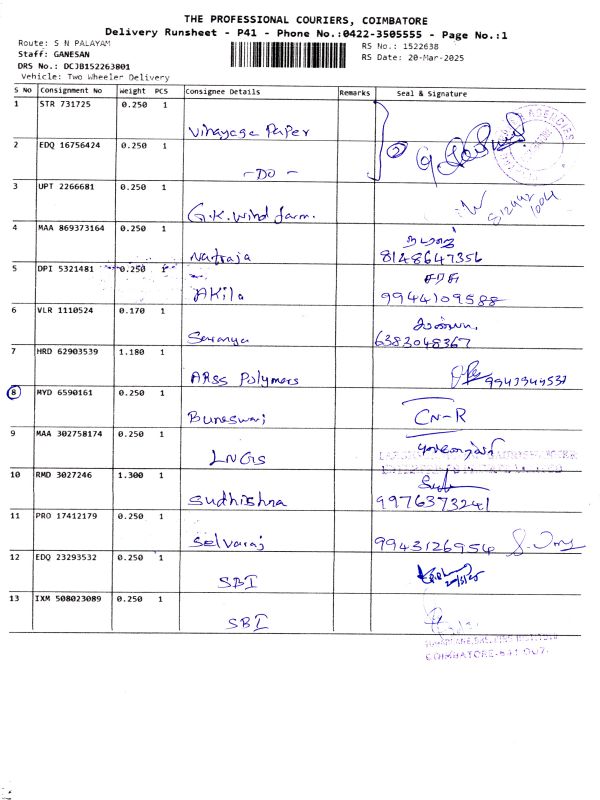 THE PROFESSIONAL COURIERS, COIMBATORE
Delivery Runsheet - P41 - Phone No.:0422-3505555 - Page No.:1
Route: S N PALAYAM
RS No.: 1522638
Staff: GANESAN
RS Date: 20-Mar-2025
DRS No.: DCJB152263801
Vehicle: Two Wheeler Delivery
S No Consignment No Weight PCS Consignee Details Remarks Seal & Signature
1 STR 731725 0.250 1
Vinayaga Paper
2 EDQ 16756424 0.250 1
2
- DO -
3 UPT 2266681 0.250 1
G.K. Wind farm.
4 MAA 869373164 0.250 1
நடராஜ
Natraja 8148647356
5 DPI 5321481 0.250 1
சரசு
Akila 9944109588
6 VLR 1110524 0.170 1
Saranya 6383048367
7 HRD 62903539 1.180 1
ARSS Polymers
8 MYD 6590161 0.250 1
Buneswari CN-R
9 MAA 302758174 0.250 1
LNGS
10 RMD 3027246 1.300 1
Sudhishna 9976373241
11 PRO 17412179 0.250 1
Selvaraj 9943126954
12 EDQ 23293532 0.250 1
SBI
13 IXM 508023089 0.250 1
SBI
COIMBATORE-641 007.